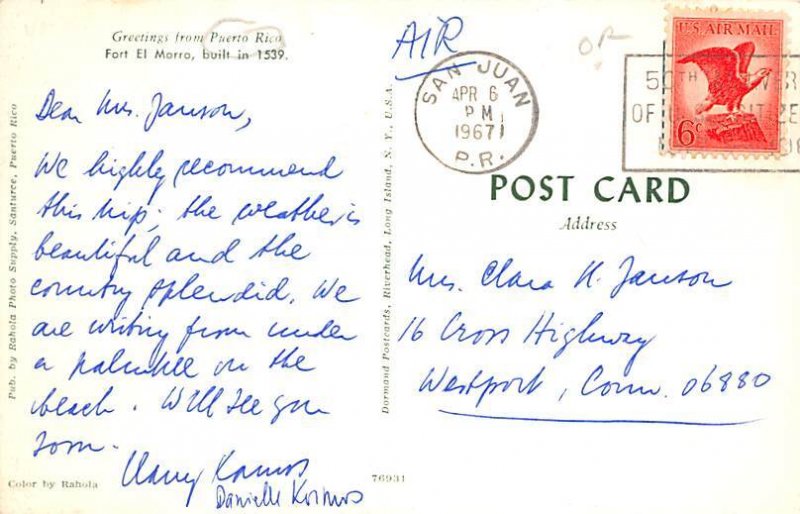 Greetings from Puerto Rico
Fort El Morro, built in 1539.
Dear Mrs. Janson,
We highly recommend
this trip; the weather is
beautiful and the
country splendid. We
are writing from under
a palmtree on the
beach. Will see you
soon.
Danielle Kosmos
Color by Rahola
76931
Pub. by Rahola Photo Supply, Santurce, Puerto Rico
Dormand Postcards, Riverhead, Long Island, N. Y., U.S.A.
AIR
SAN JUAN
APR 6
PM
1967
P.R.
OR
50TH
OF
U.S. AIR MAIL
6c
POST CARD
Address
Mrs. Clara K. Janson
16 Cross Highway
Westport, Conn. 06880